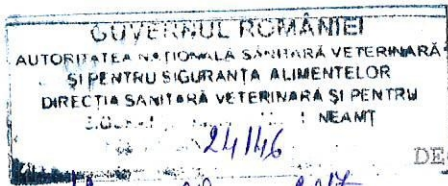 GUVERNUL ROMÂNIEI
AUTORITATEA NAȚIONALĂ SANITARĂ VETERINARĂ
ȘI PENTRU SIGURANȚA ALIMENTELOR
DIRECȚIA SANITARĂ VETERINARĂ ȘI PENTRU
NEAMȚ
24146
DE
2017